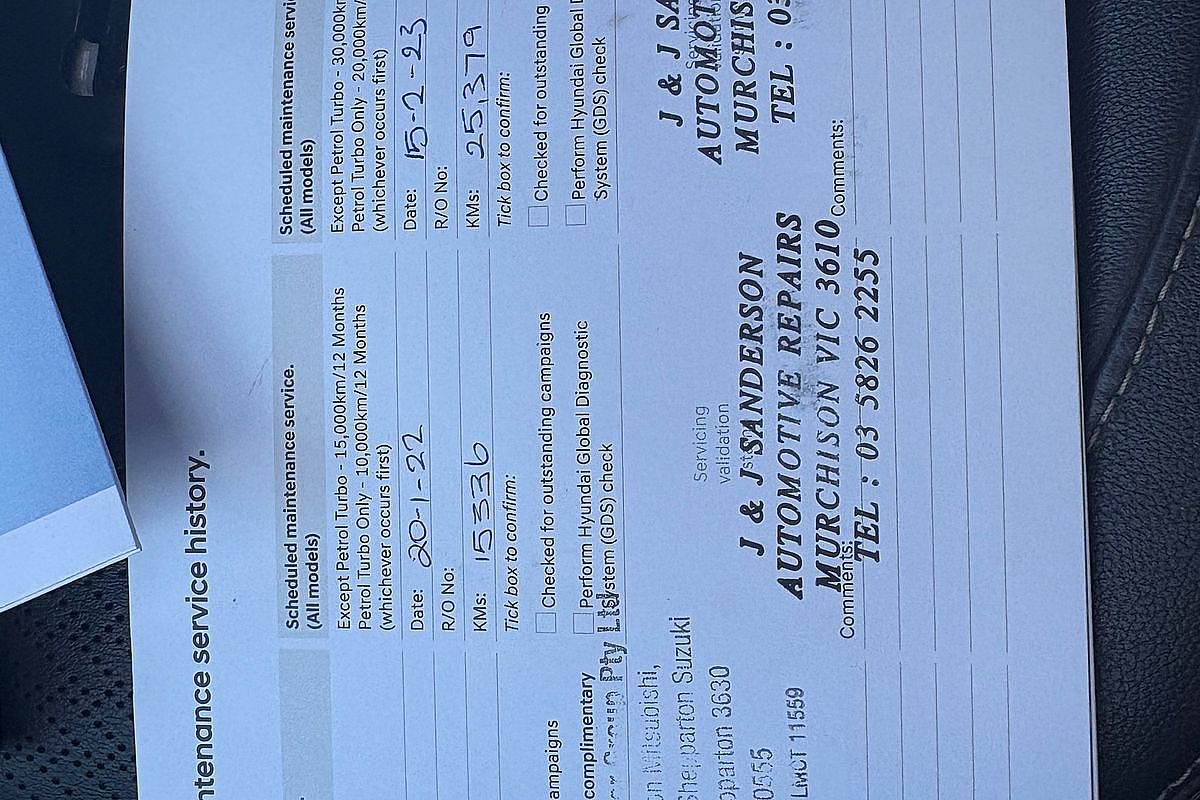 ntenance service history.
ampaigns
complimentary
Pty Ltd
on Mitsubishi,
Shepparton Suzuki
pparton 3630
0555
LMCT 11559
Scheduled maintenance service.
(All models)
Except Petrol Turbo - 15,000km/12 Months
Petrol Turbo Only - 10,000km/12 Months
(whichever occurs first)
Date: 20-1-22
R/O No:
KMs: 15336
Tick box to confirm:
Checked for outstanding campaigns
Perform Hyundai Global Diagnostic
System (GDS) check
Servicing
validation
J & J SANDERSON
AUTOMOTIVE REPAIRS
MURCHISON VIC 3610
TEL : 03 5826 2255
Comments:
Scheduled maintenance servi
(All models)
Except Petrol Turbo - 30,000k
Petrol Turbo Only - 20,000km/
(whichever occurs first)
Date: 15-2-23
R/O No:
KMs: 25,379
Tick box to confirm:
Checked for outstanding
Perform Hyundai Global D
System (GDS) check
J & J SA
AUTOMOT
MURCHIS
TEL : 03
Comments: